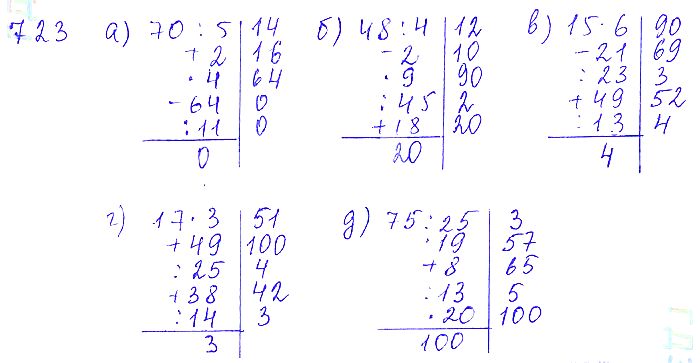 723 а) 70 : 5 | 14
+ 2 | 16
· 4 | 64
- 64 | 0
: 11 | 0
0
б) 48 : 4 | 12
- 2 | 10
· 9 | 90
: 45 | 2
+ 18 | 20
20
в) 15 · 6 | 90
- 21 | 69
: 23 | 3
+ 49 | 52
: 13 | 4
4
г) 17 · 3 | 51
+ 49 | 100
: 25 | 4
+ 38 | 42
: 14 | 3
3
д) 75 : 25 | 3
· 19 | 57
+ 8 | 65
: 13 | 5
· 20 | 100
100